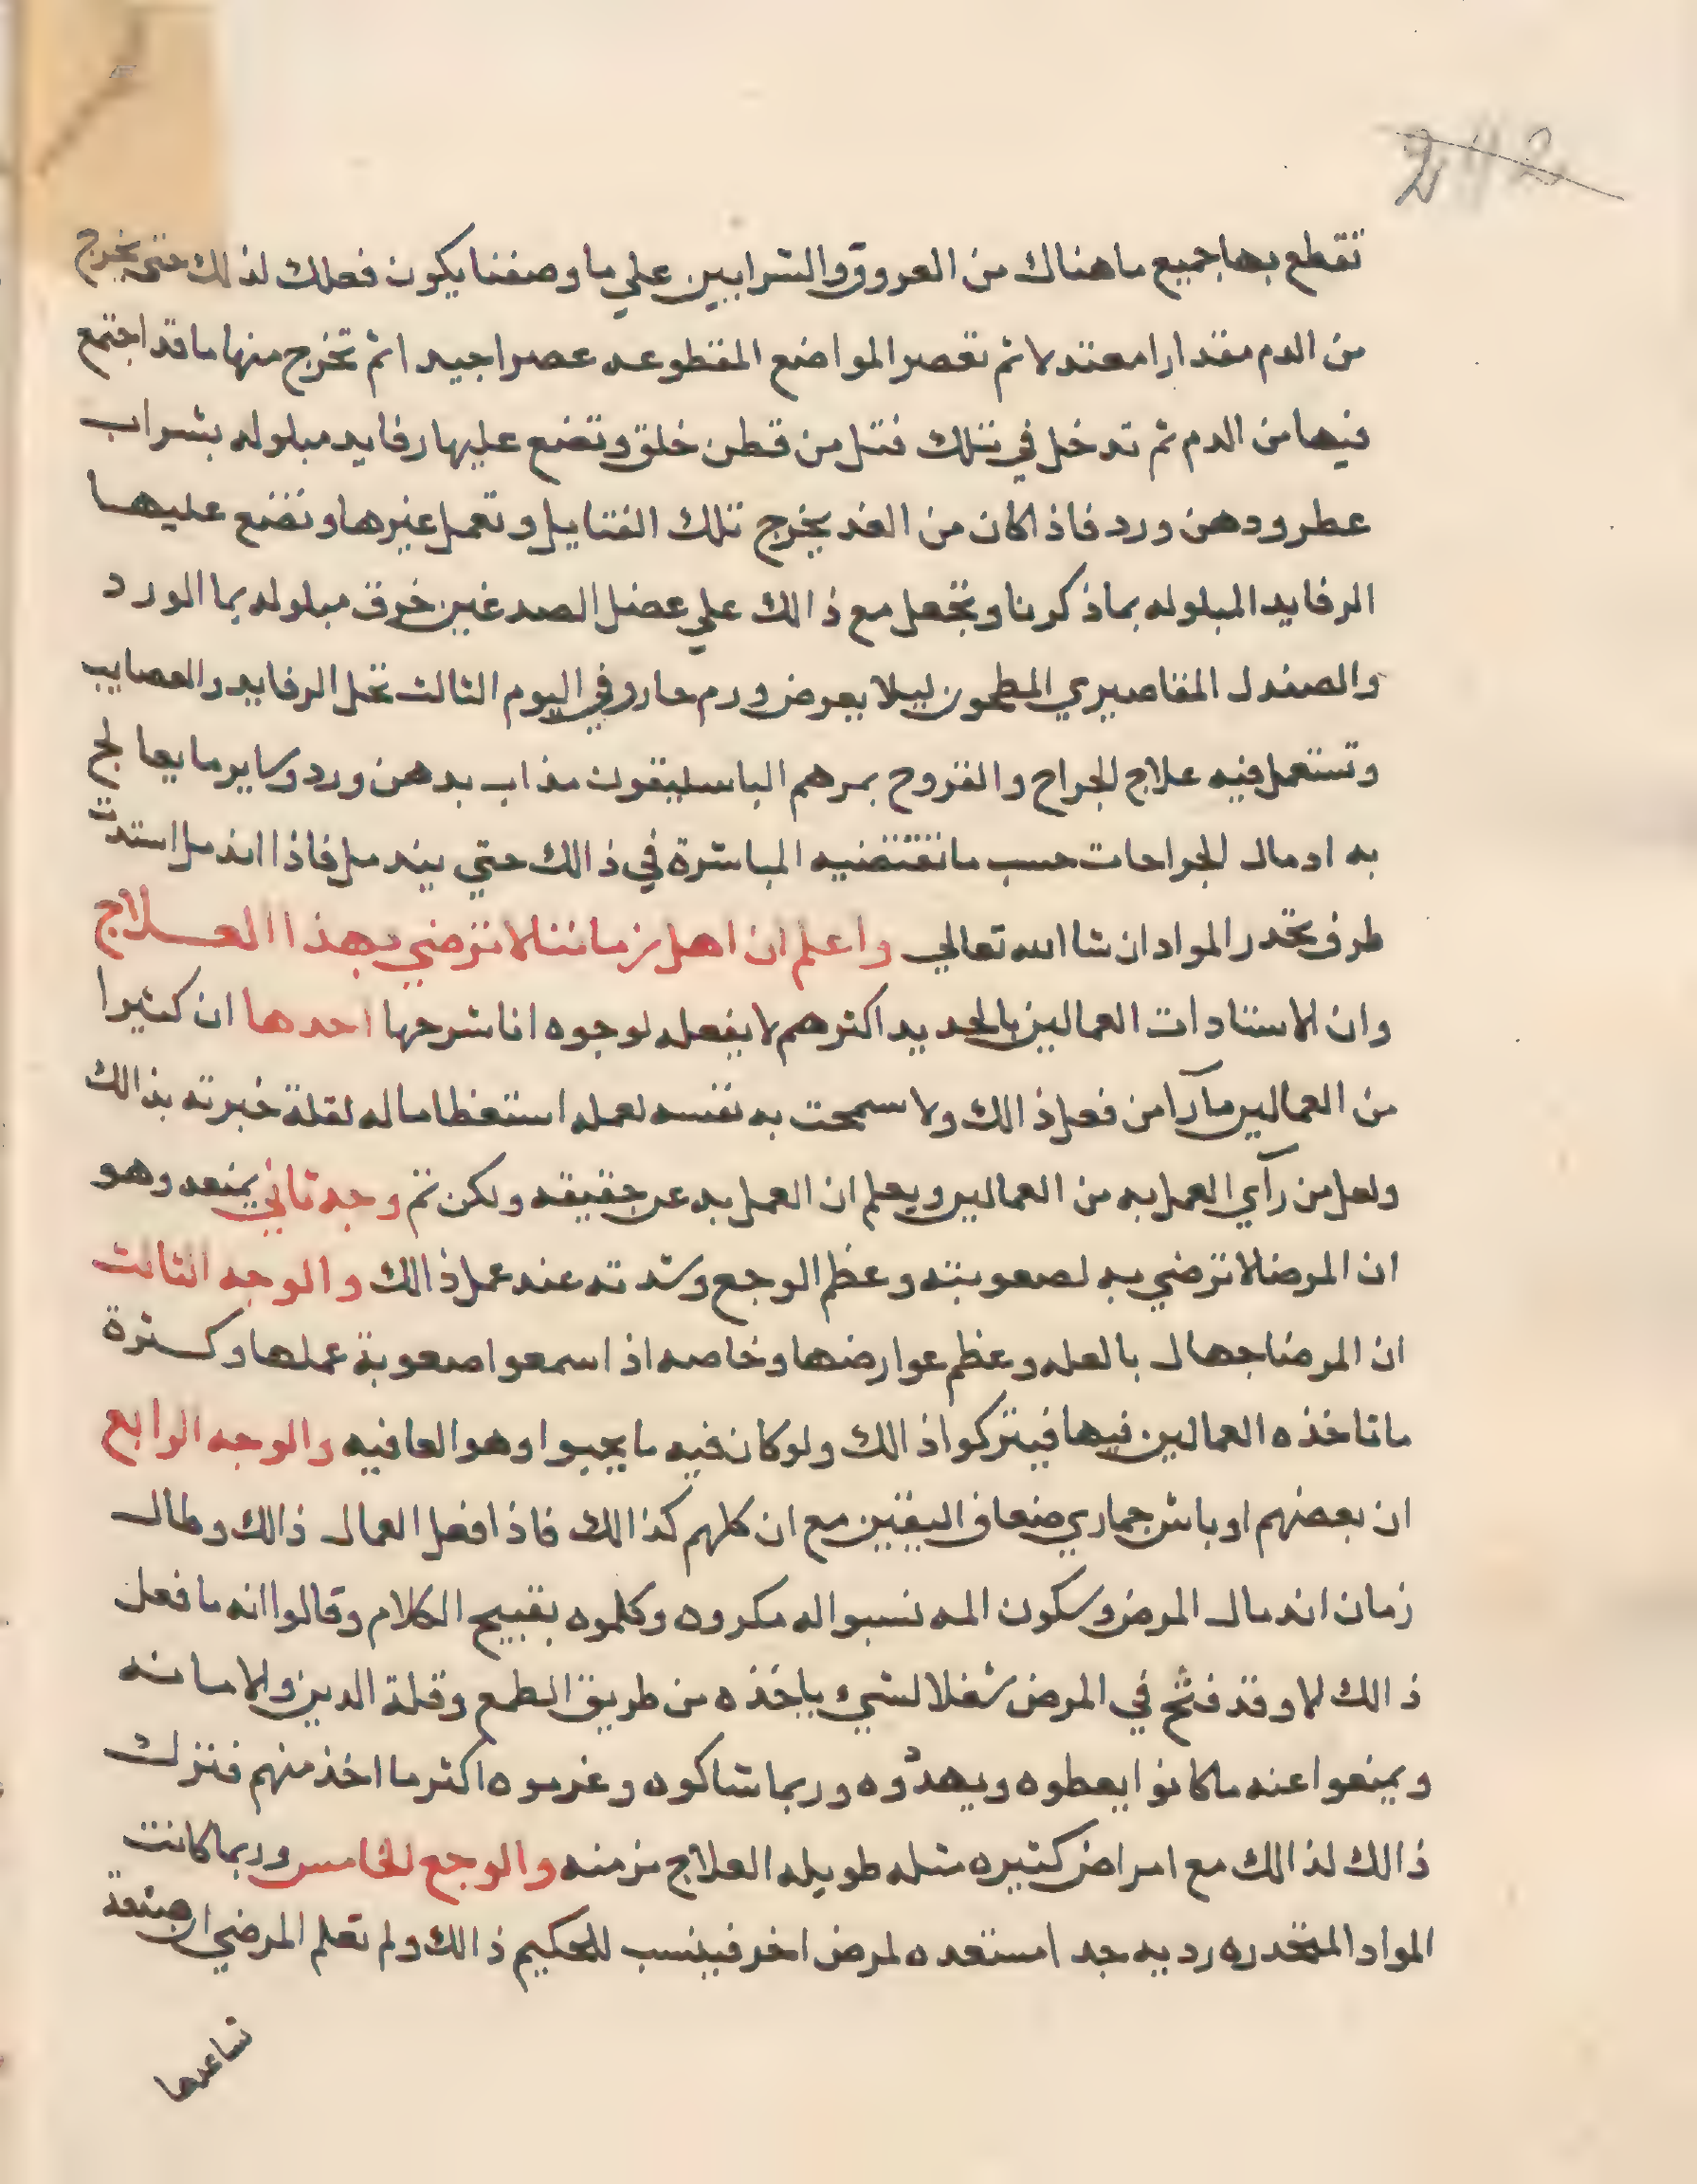 242
تقطع بها جميع ما هناك من العروق والشرايين علي ما وصفنا يكون فعلك لذلك حتى يخرج
من الدم مقدارا معتدلا ثم تعصر المواضع المقطوعه عصرا جيدا ثم تخرج منها ما قد اجتمع
فيها من الدم ثم تدخل في تلك فتل من قطن خلق وتضع عليها رفايد مبلوله بشراب
عطر ودهن ورد فاذا كان من الغد يخرج تلك الفتايل وتعمل غيرها وتضع عليها
الرفايد المبلوله بما ذكرنا وتجعل مع ذالك علي عضل الصدغين خرق مبلوله بما الورد
والصندل المقاصيري المطحون ليلا يعرض ورم حار وفي اليوم الثالث تحل الرفايد والعصايب
وتستعمل فيه علاج الجراح والقروح بمرهم الباسليقون مذاب بدهن ورد وساير ما يعالج
به ادمال الجراحات حسب ما تقتضيه المباشرة في ذالك حتي يندمل فاذا اندمل استدت
طرق تحدر المواد ان شا الله تعالي واعلم ان اهل زماننا لا ترضي بهذا العـــلاج
وان الاستادات العمالين بالحديد اكثرهم لا يفعله لوجوه انا شرحها احدها ان كثيرا
من العمالين ما رآ من فعل ذالك ولا سمحت به نفسه لعمله استعظاما له لقلة خبرته بذالك
ولعل من رآي العمل به من العمالين ويعلم ان العمل به عن حقيقه ولكن ثم وجه ثاني يمنعه وهو
ان المرضا لا ترضي به لصعوبته وعظم الوجع وشدته عند عمل ذالك والوجه الثالث
ان المرضا جهال بالعله وعظم عوارضها وخاصه اذا سمعوا صعوبة عملها وكثرة
ما تاخذه العمالين فيها فيتركوا ذالك ولو كان فيه ما يحبوا وهو العافيه والوجه الرابع
ان بعضهم اوباش جماري ضعاف اليقين مع ان كلهم كذالك فاذا فعل العمال ذالك وطال
زمان اندمال المرض وسكون المه نسبوا له مكروه وكلموه بقبيح الكلام وقالوا انه ما فعل
ذالك الا وقد فتح في المرض شغلا لشيء ياخذه من طريق الطمع وقلة الدين والامانه
ويمنعوا عنه ما كانوا يعطوه ويهدوه وربما شاكوه وغرموه اكثر ما اخذ منهم فنزلت
ذالك لذالك مع امراض كتيره مثله طويله العلاج مزمنه والوجع الخامس وربما كانت
المواد المتحدره رديه جدا مستعده لمرض اخر فينسب للحكيم ذالك ولم تعلم المرضي ان صنعة
تساعدها